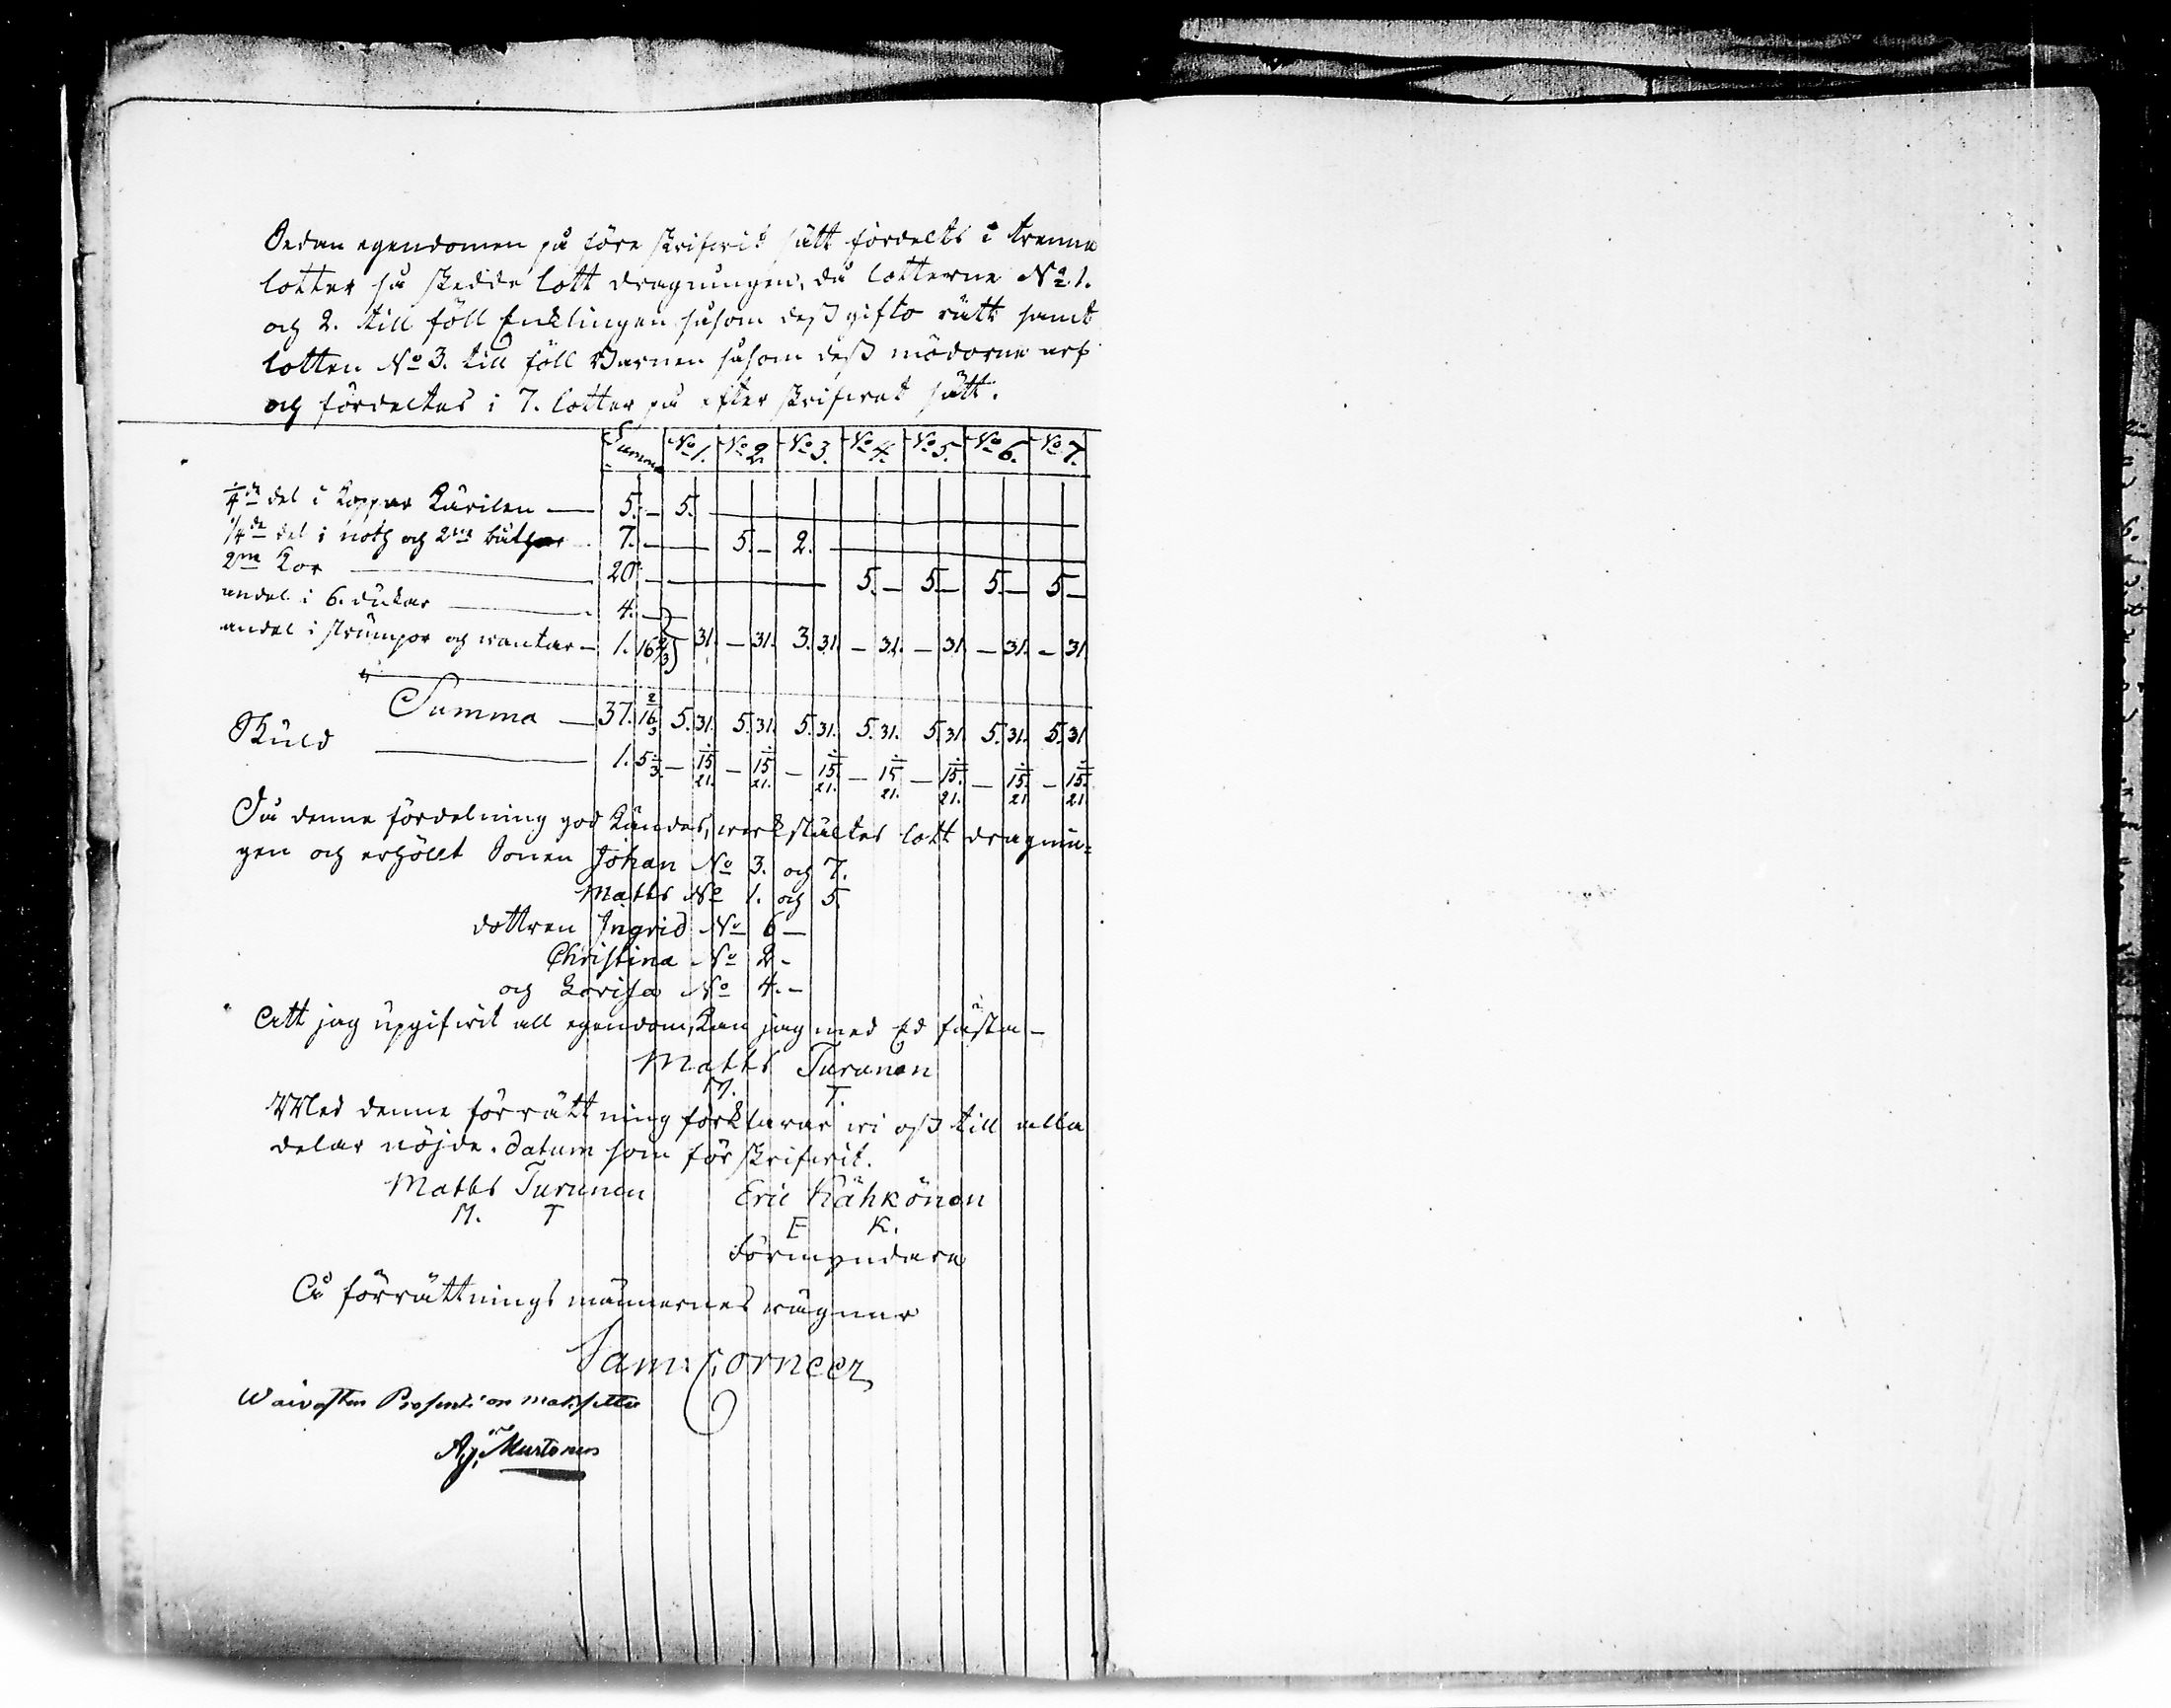 Sedan egendomen på före skrifwit sätt fördelts i trenne
lotter så skedde lott dragningen, då lotterne No 1.
och 2. till föll Enklingen såsom dess gifto rätt samt
lotten No 3. till föll Barnen såsom dess möderne arf
och fördeltes i 7. lotter på efter skrifwet sätt.
Summa No 1. No 2 No 3. No 4. No 5. No 6. No 7.
1/4de del i Koppar Kärilen — 5. — 5.
1/4de del i noth och 2ne båthar 7. — 5. — 2.
2ne Kor — 20 — 5. — 5 — 5. — 5 —
andel i 6. dukar — 4. —
andel i strumpor och wantar — 1. 16 2/3 31. — 31. 3. 31. — 31. — 31. — 31. — 31
Summa — 37. 16 2/3 5. 31. 5. 31. 5. 31. 5. 31. 5. 31. 5. 31. 5. 31
Skuld — 1. 5 1/3 — 15/21. — 15/21. — 15/21. — 15/21. — 15/21. — 15/21 — 15/21
Då denne fördelning god kändes, werkstältes lott dragnin=
gen och erhöllt Sonen Johan No 3. och 7.
Matts No 1. och 5.
dottren Ingrid No 6 —
Christina No 2 —
och Lovisa No 4. —
Att jag upgifwit all egendom, kan jag med Ed fästa —
Matts Turunen
M. T.
Med denne förrättning förklarar wi oss till alla
delar nöjde. datum som för skrifwit.
Matts Turunen Eric Kähkönen
M. T E K.
Förmyndare
Å förrättnings männernes wägnar
Sam: Corneer